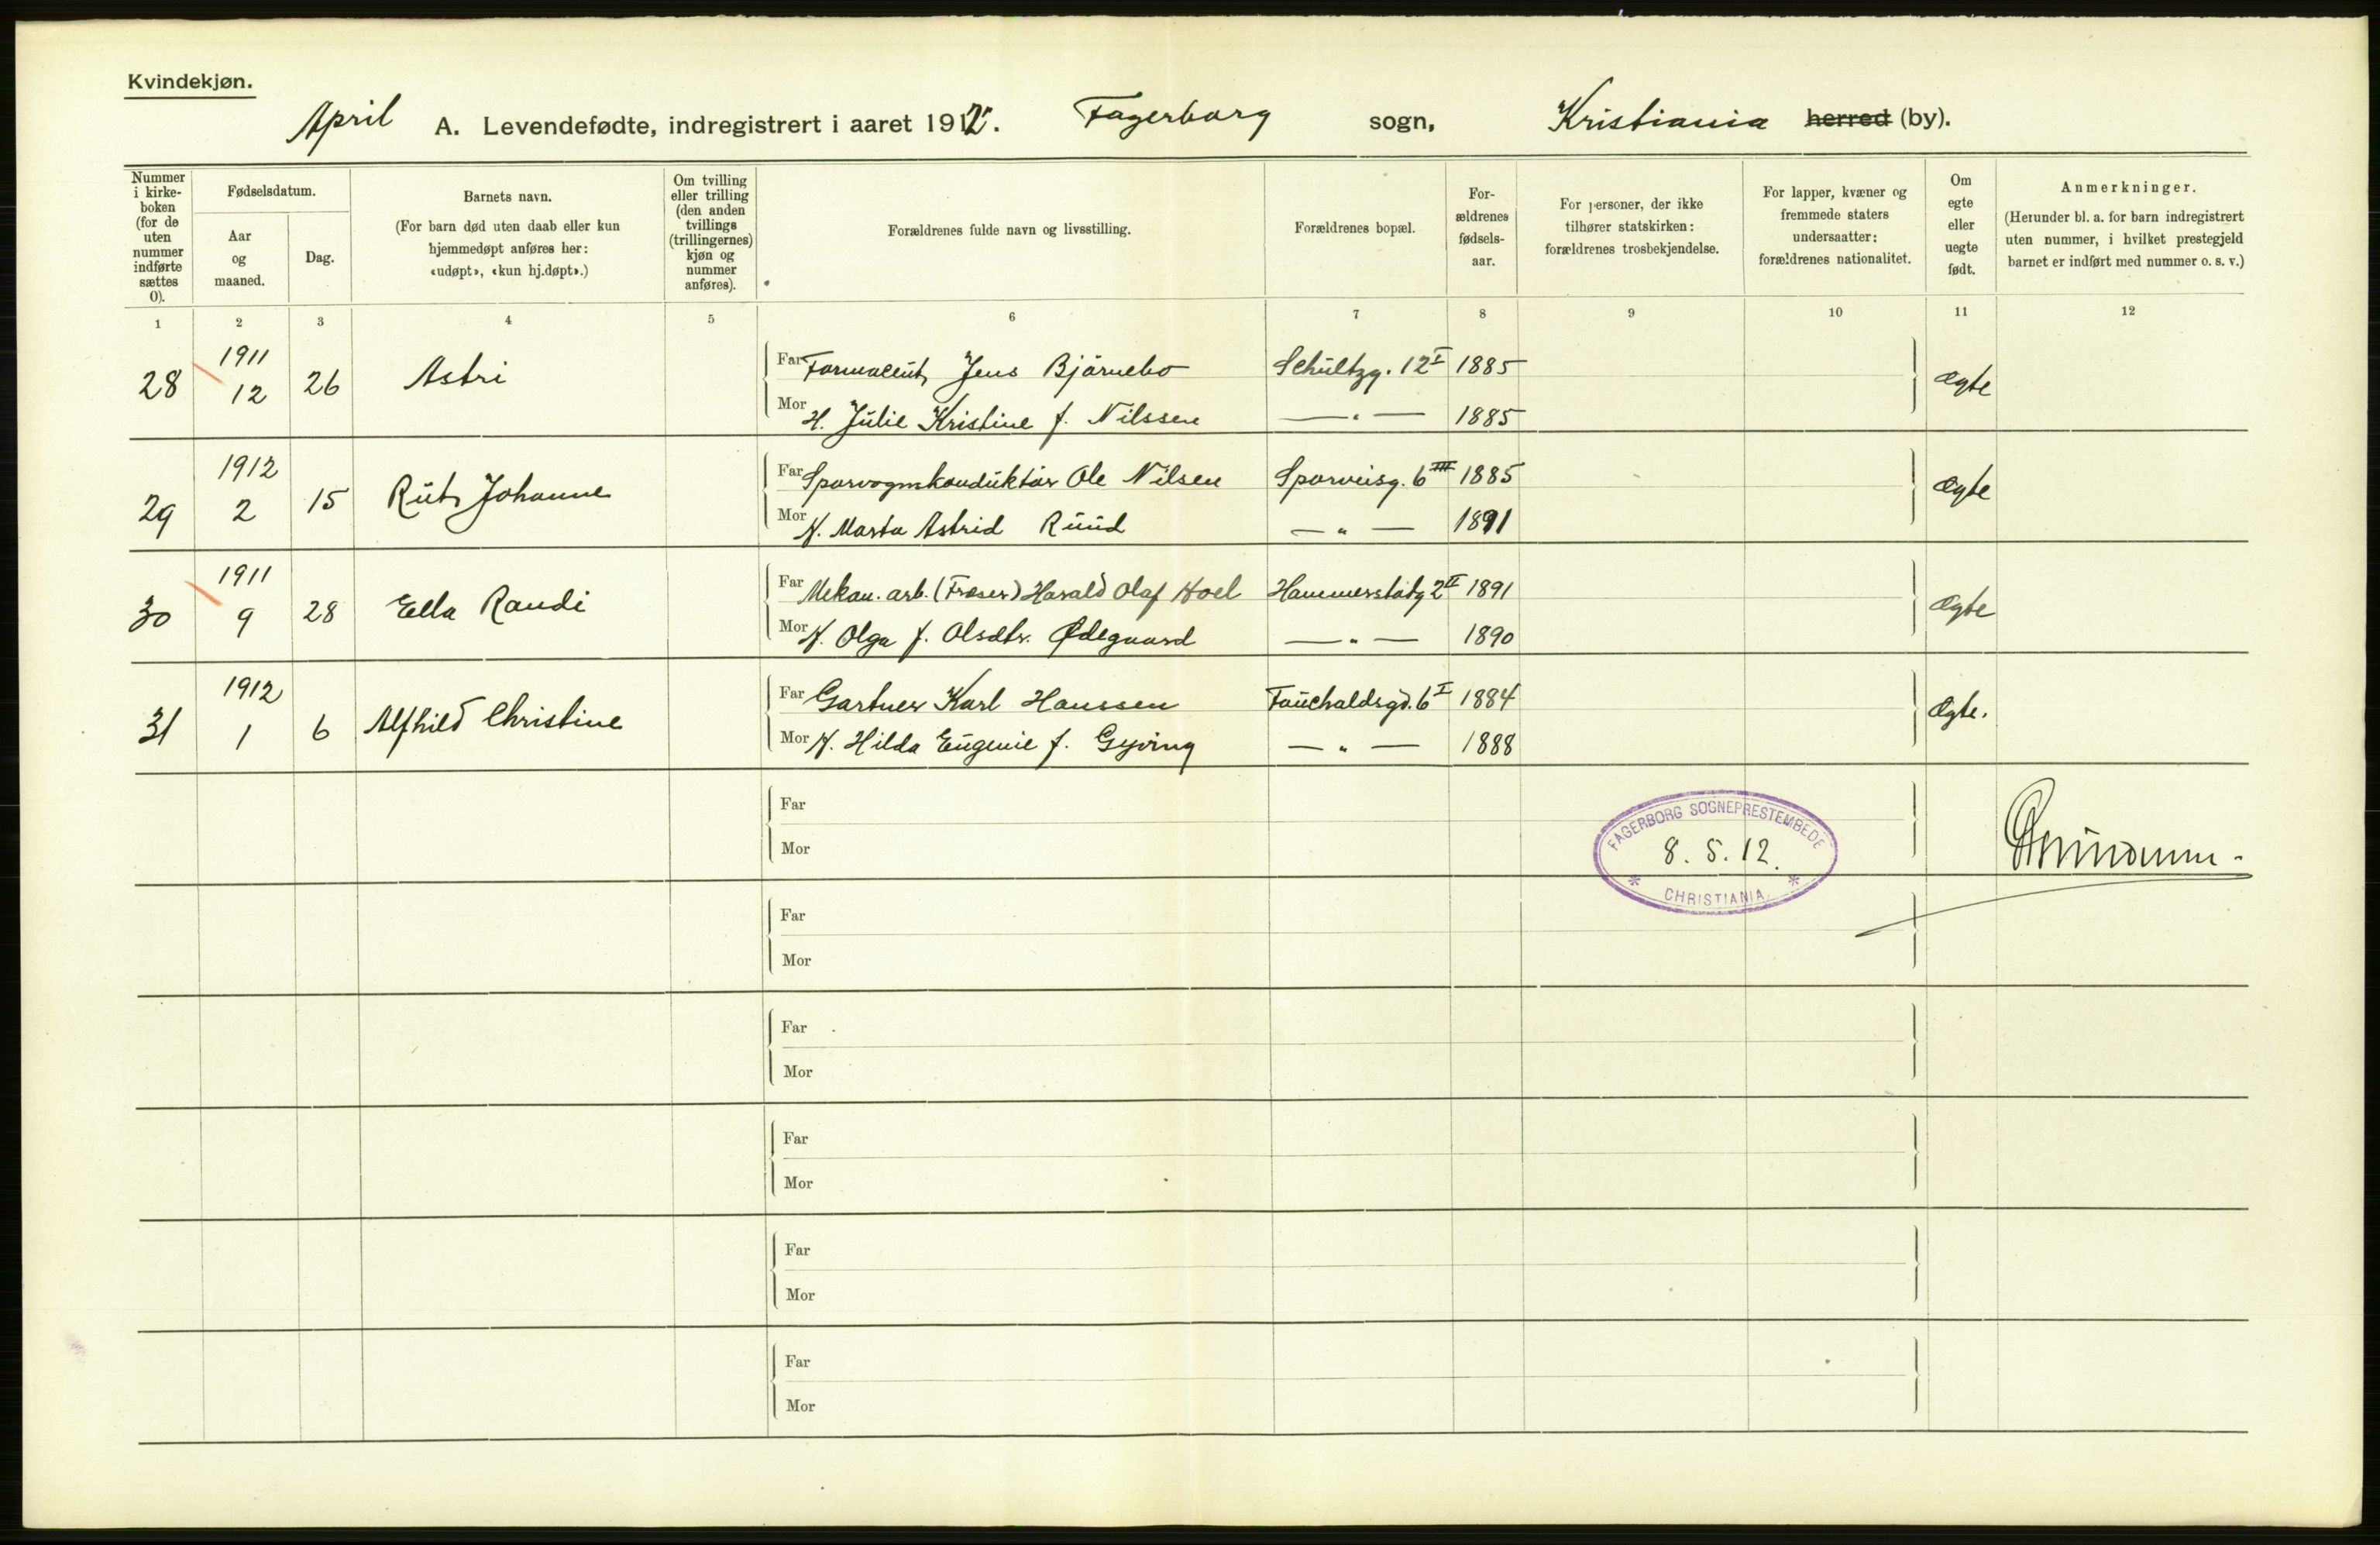 Kvindekjøn.
April A. Levendefødte, indregistrert i aaret 1912. Fagerborg sogn, Kristiania herred (by).
Nummer i kirke- boken (for de uten nummer indførte sættes 0).
Fødselsdatum.
Aar og maaned.
Dag.
Barnets navn.
(For barn død uten daab eller kun hjemmedøpt anføres her: «udøpt», «kun hj.døpt».)
Om tvilling eller trilling (den anden tvillings (trillingernes) kjøn og nummer anføres).
Forældrenes fulde navn og livsstilling.
Forældrenes bopæl.
For- ældrenes fødsels- aar.
For personer, der ikke tilhører statskirken: forældrenes trosbekjendelse.
For lapper, kvæner og fremmede staters undersaatter: forældrenes nationalitet.
Om egte eller uegte født.
Anmerkninger.
(Herunder bl. a. for barn indregistrert uten nummer, i hvilket prestegjeld barnet er indført med nummer o. s. v.)
1 2 3 4 5 6 7 8 9 10 11 12
28 1911 12 26 Astri Far Farmaceut, Jens Bjärnebo Schultzg. 12 I 1885 Ægte
Mor H. Julie Kristine f. Nilssen — " — 1885
29 1912 2 15 Rut Johanne Far Sporvognskonduktör Ole Nilsen Sporveisg. 6 III 1885 Ægte
Mor H. Marta Astrid Ruud — " — 1891
30 1911 9 28 Ella Randi Far Mekan. arb. (Fraser) Harald Olaf Hoel Hammerstadg 2 II 1891 Ægte
Mor H. Olga f. Olsdtr. Ødegaard — " — 1890
31 1912 1 6 Alfhild Christine Far Gartner Karl Hanssen Fauchaldsgd. 6 I 1884 Ægte.
Mor H. Hilda Eugenie f. Gyving — " — 1888
Far
Mor
FAGERBORG SOGNEPRESTEMBEDE
8. 5. 12.
* CHRISTIANIA *
Far
Mor
Far
Mor
Far
Mor
Far
Mor
Far
Mor